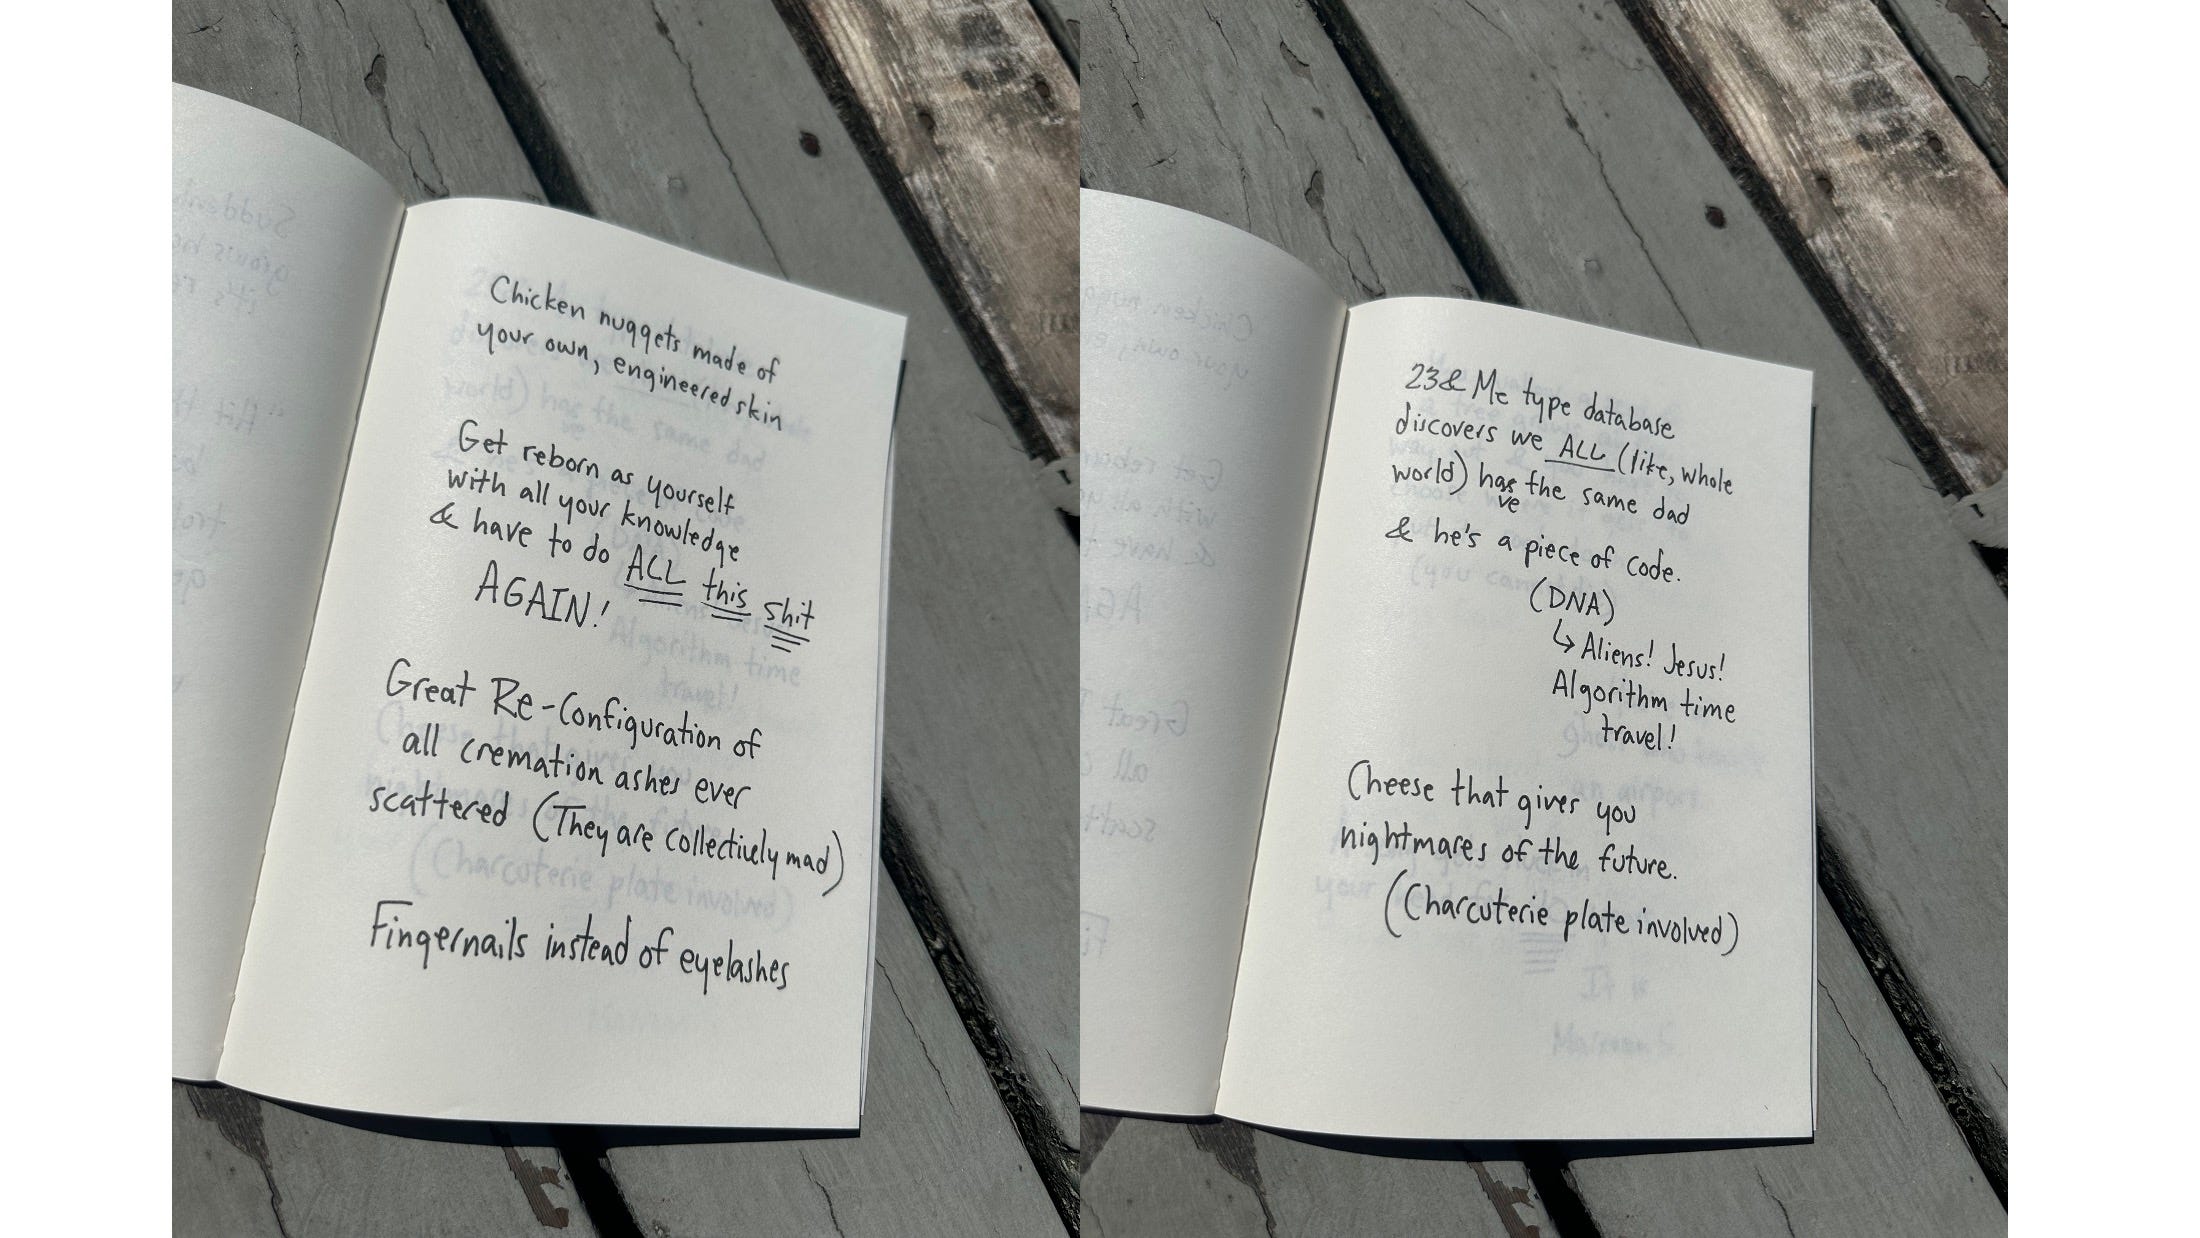 Chicken nuggets made of
your own, engineered skin
Get reborn as yourself
with all your knowledge
& have to do ALL this shit
AGAIN!
Great Re-Configuration of
all cremation ashes ever
scattered (They are collectively mad)
Fingernails instead of eyelashes
23& Me type database
discovers we ALL (like, whole
world) has the same dad
ve
& he's a piece of code.
(DNA)
↳ Aliens! Jesus!
Algorithm time
travel!
Cheese that gives you
nightmares of the future.
(Charcuterie plate involved)